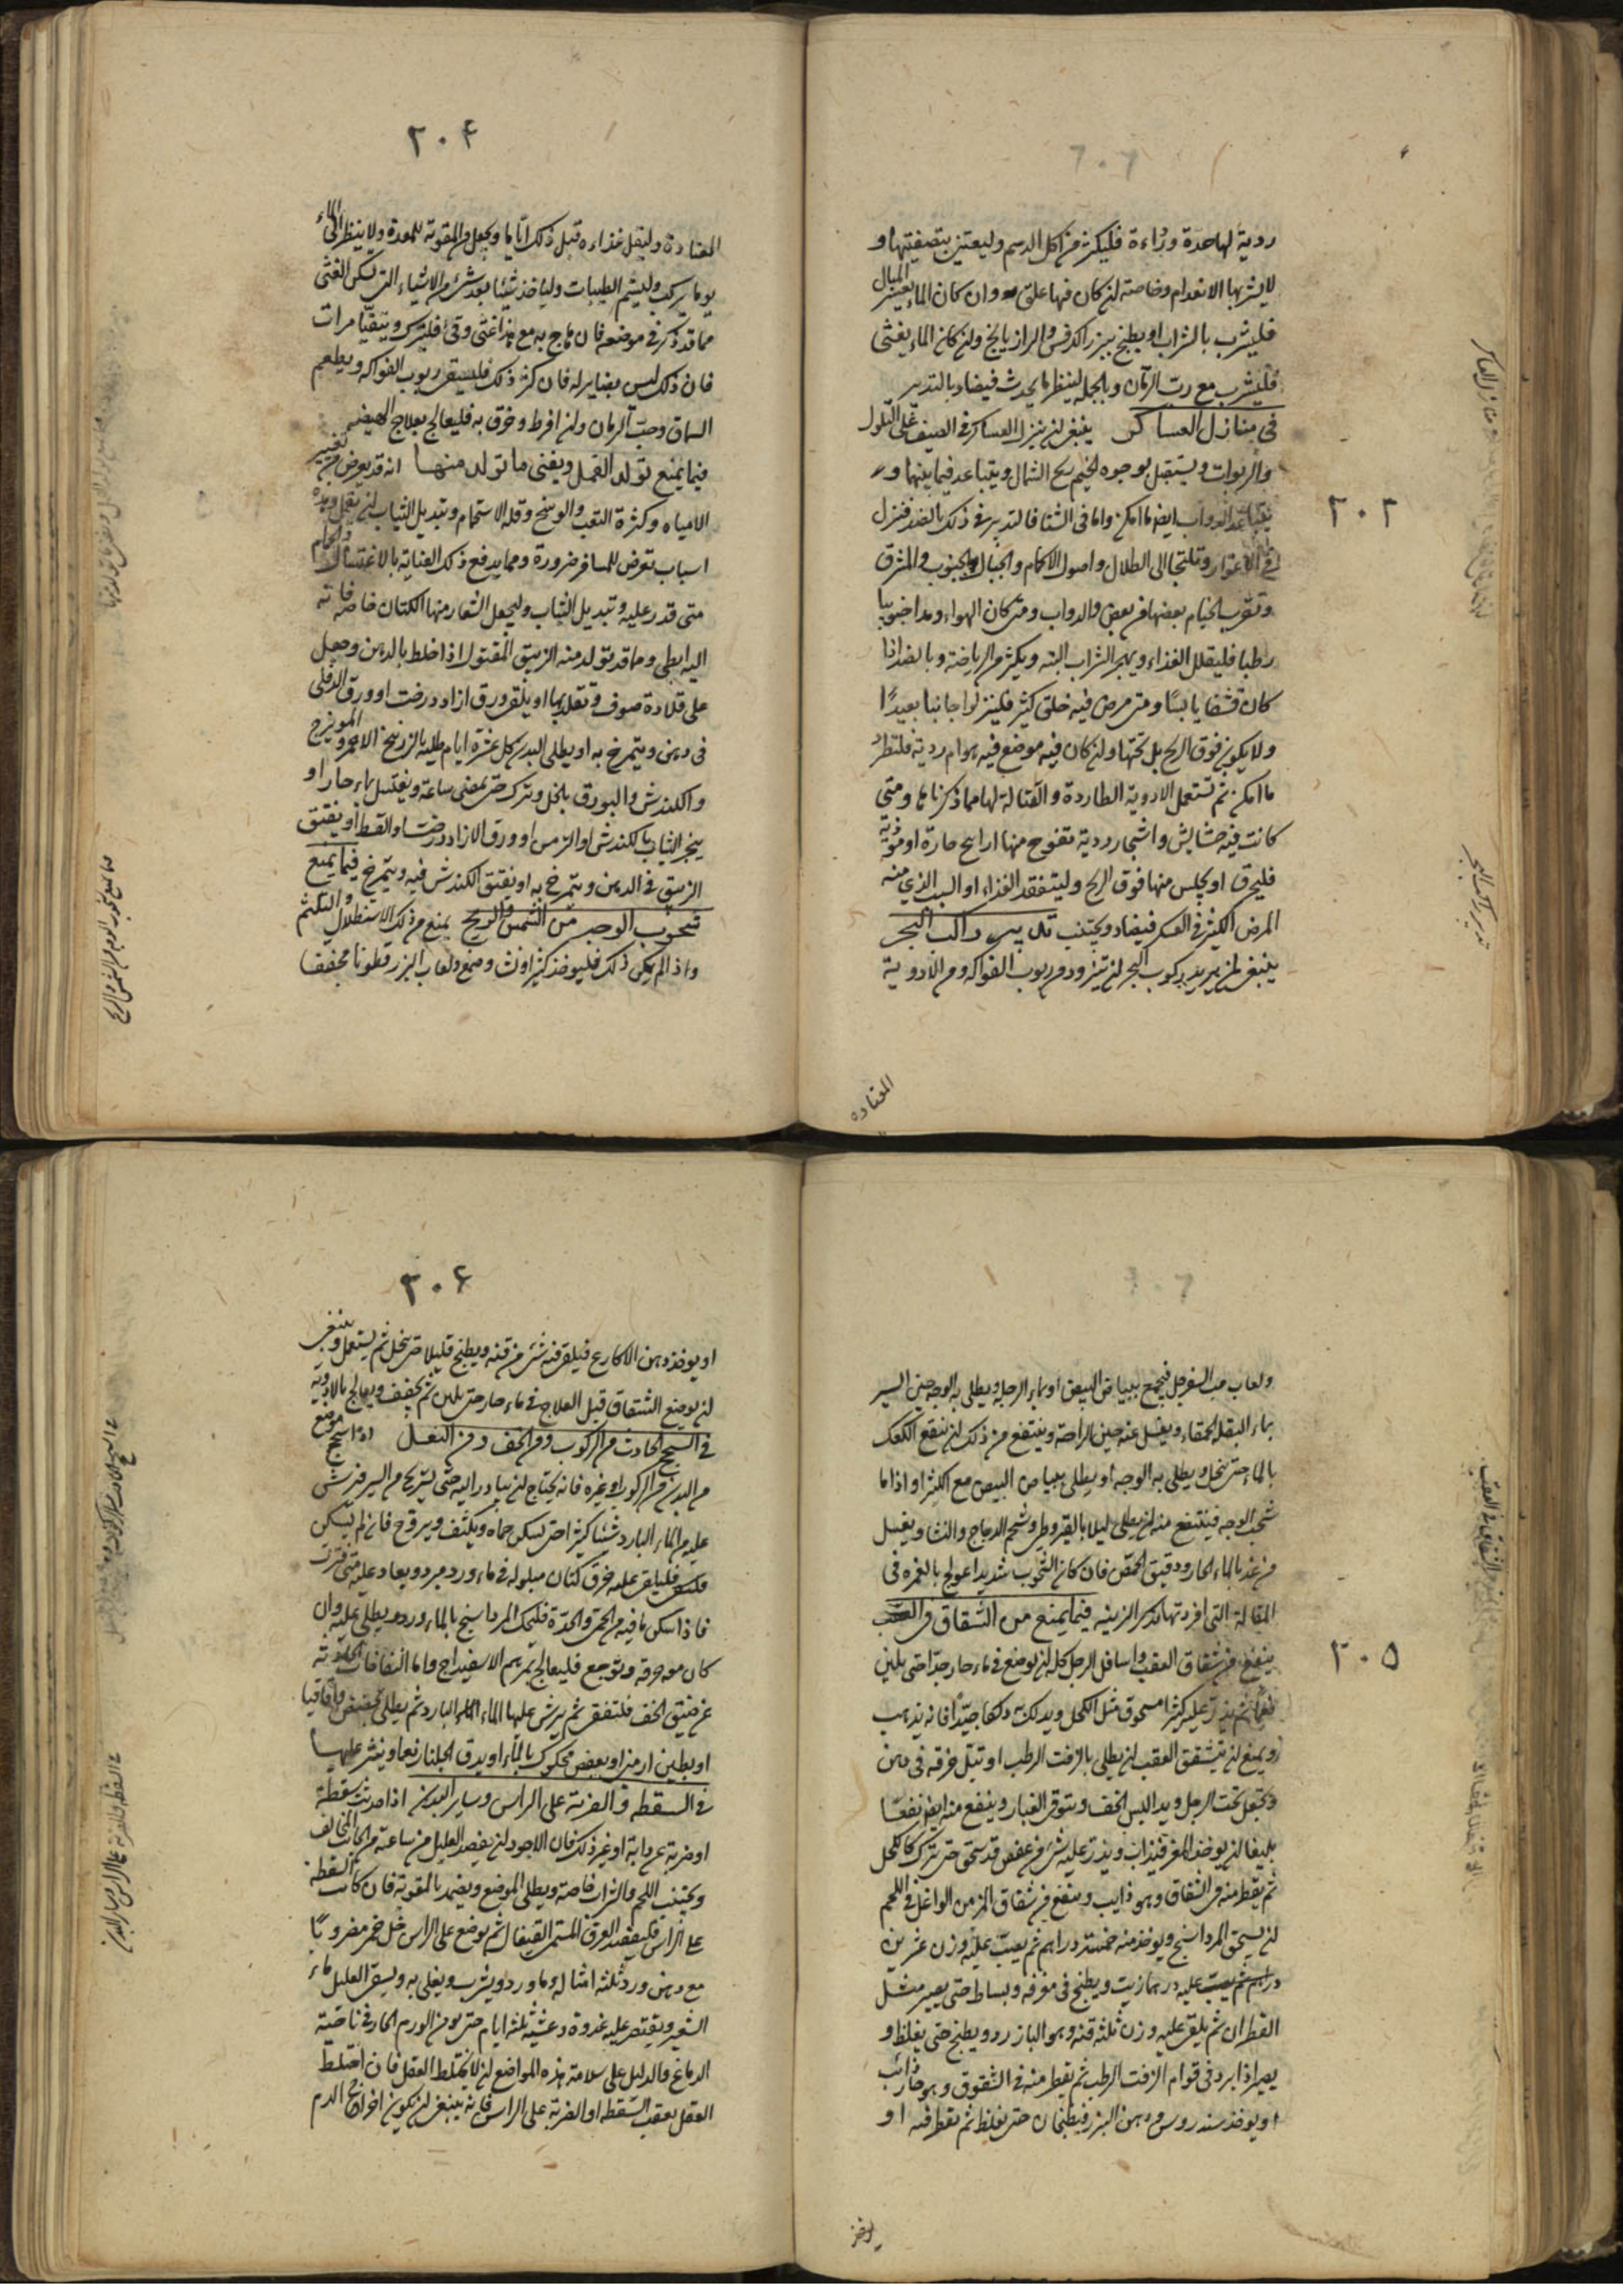 ردية لها حدة ورداءة فليكثر من اكل الدسم وليعتن بتصفيتها و
لا يشربها الا بعد ام وخاصة لن كان فيها علق وان كان الماء يعسر المبال
فليشرب بالشراب او يطبخ ببزر الكرفس والرازيانج ولن كان الماء يغثى
فليشرب مع رب الرمان وبالجملة لينظر ما يحدث فيضاد بالتدبير
في منازل العساكر ينبغى لن ينزل العساكر في الصيف على التلول
والربوات ويستقبل بوجوه الخيم ريح الشمال ويتباعد فيما بينها و
الدواب ايضا ما امكن واما فى الشتا فالتدبير في ذلك بالضد فتنزل
في الاغوار وتلتجا الى الطلال واصول الاكام والجبال والجنوب والمشرق
وتقرب الخيام بعضها من بعض والدواب ومتى كان الهواء ومدا جنوبيا
رطبا فليقلل الغذاء ويهجر الشراب البتة ويكثر من الرياضة وبالضد اذا
كان قشفا يابسًا ومتى مرض فيه خلق كثير فلينزلوا جانبا بعيدًا
ولا يكون فوق الريح بل تحتها ولن كان فيه موضع فيه هوام ردية فلتطرد
ما امكن ثم تستعمل الادوية الطاردة والقتالة لها مما ذكرنا ها ومتى
كانت فيه حشايش واشجار ردية تفوح منها اراييح حارة او موذية
فليحرق او يجلس منها فوق الريح وليتفقد الغذاء او السبب الذي منه
المرض الكثير في العسكر فيضاد ويجتنب تدبير راكب البحر
ينبغى لمن يريد ركوب البحر لن يتزود من ربوب الفواكه ومن الادوية
المعتاده
٣٠٣
٣٠٤
المعتادة وليقل غذاءه قبل ذلك اياما ويجعل من المقوية للمعدة ولا ينظر الى الماء
يوما يركب وليشم الطيبات ولياخذ شيئا بعد شئ من الاشياء التي تسكن الغثى
مما قد ذكر في موضعه فان هاج به مع هذا غثى وقئ فليترك ويتقيا مرات
فان ذلك ليس بضاير له فان كثر ذلك فليسق ربوب الفواكه ويطعم
السماق وحب الرمان ولن افرط وخوف به فليعالج بعلاج الهيضة
فيما يمنع تولد القمل ويفنى ما تولد منها انه قد يعرض من تغيير
الامياه وكثرة التعب والوسخ وقلة الاستحمام وتبديل الثياب لن يقمل وهذه
اسباب تعرض للمسافر ضرورة ومما يدفع ذلك العناية بالاغتسال والحمام
متى قدر عليه وتبديل الثياب وليجعل الشعار منها الكتان خاصة فانه
اليه ابطى ومما قد تولد منه الزيبق المقتول اذا خلط بالدهن وجعل
على قلادة صوف وتقلد بها او يلقى ورق ازاد درخت او ورق الدفلى
في دهن ويتمرخ به او يطلى البدن كل عشرة ايام طلية بالزرنيخ الاحمر والمويزج
والكندش والبورق بالخل ويترك حتى يمضى ساعة ويغتسل بماء حار او
يبخر الثياب بالكندش او الترمس او ورق الازاد درخت او القسط او يفتق
الزيبق في الدهن ويتمرخ به او يفتق الكندش فيه ويتمرخ فيما يمنع
شحوب الوجه من الشمس والريح يمنع من ذلك الاستظلال والتلثم
واذا لم يمكن ذلك فليوخذ كثيرا ونشا وصمغ ولعاب البزر قطونا مجففا
ولعاب حب السفرجل فيجمع ببياض البيض او بماء الرجلة ويطلى به الوجه حين السير
بماء البقلة الحمقاء ويغسل عنه حين الراحة وينتفع من ذلك لن ينقع الكعك
بالماء حتى ينحل ويطلى به الوجه او يطلى ببياض البيض مع الكثيرا واذا ما
شحب الوجه فينتفع منه لن يطلى ليلا بالقيروطي وشحم الدجاج والنشا ويغسل
من غد بالماء الحار ودقيق الحمص فان كان الشحوب شديدا عولج بالغمرة في
المقالة التى افردتها بذكر الزينة فيما يمنع من الشقاق في العقب
ينفع من شقاق العقب واسافل الرجل كله لن يوضع في ماء حار جدًا حتى يلين
نعما ثم يذر عليه كثيرا مسحوق مثل الكحل ويدلك به دلكا جيّدًا فانه يذهب
ويمنع لن يتشقق العقب لن يطلى بالزفت الرطب او تبل خرقة في دهن
وتجعل تحت الرجل ويد البس الخف ويتوقى الغبار وينفع منه ايضا نفعًا
بليغا لن يوخذ المغر فيذاب ويذر عليه شئ من عفص قد سحق حتى ترك كالكحل
ثم يقطر منه في الشقاق وهو ذايب وينفع من شقاق المزمن الواغل في اللحم
لن يسحق المرداسنج ويوخذ منه خمسة دراهم ثم يصب عليه وزن عشرين
درهم ثم يصب عليه درهما زيت ويطبخ في مغرفة وبساط حتى يصير مثل
القطران ثم يلقى عليه وزن ثلثة قنه وهو البازرد ويطبخ حتى يغلظ و
يصير اذا برد في قوام الزفت الرطب ثم يقطر منه في الشقوق وهو حار ذائب
او يوخذ سندروس ودهن البزر فيطبخان حتى يغلظ ثم يقطر فيه او
يوخذ
٣٠٥
٣٠٦
او يوخذ دهن الاكارع فيلقى فيه شئ من قنه ويطبخ قليلا حتى ينحل ثم يستعمل وينبغى
لن يوضع الشقاق قبل العلاج في ماء حار حتى يلين ثم يجفف ويعالج بالادوية
في السحج الحادث من الركوب ومن الخف ومن النعل اذا سحج موضع
من البدن من الركوب او غيره فانه يحتاج لن يبادر اليه حتى يستريح من السير ويرش
عليه من الماء البارد شيئا كثيرا حتى يسكن حماه ويكشف ويروح فان لم يسكن
فلتلق عليه خرق كتان مبلولة في ماء ورد مبرد ويعاد عليه متى فترت
فاذا سكن ما فيه من الحمى والحدة فليحك المرداسنج بالماء ورد ويطلى عليه وان
كان معه حرقة وتوجع فليعالج بمرهم الاسفيداج واما النفاخات الحادثة
عن ضيق الخف فلتفقى ثم يرش عليها الماء البارد ثم يطلى بعفص واقاقيا
او بطين ارمنى او بعفص محكوك بالماء او يدق الجلنار نعما وينثر عليها
في السقطة والضربة على الراس وساير البدن اذا حدثت سقطة
او ضربة عن دابة او غير ذلك فان الاجود لن يفصد العليل من ساعته من الجانب المخالف
ويجتنب اللحم والشراب خاصة ويطلى الموضع ويضمد بالمقوية فان كانت السقطة
على الراس فليفصد العرق المسمى القيفال ثم يوضع على الراس خل خمر مضروبًا
مع دهن ورد ثلثة امثاله وماورد ويشرب ويغلى به ويسقى العليل ماء
الشعير ويقتصر عليه غدوة وعشية ثلثة ايام حتى يومن الورم الحار في ناحية
الدماغ والدليل على سلامة هذه المواضع لن لا يختلط العقل فان اختلط
العقل بعقب السقطة او الضربة على الراس فانه ينبغى لن يكون اخراج الدم